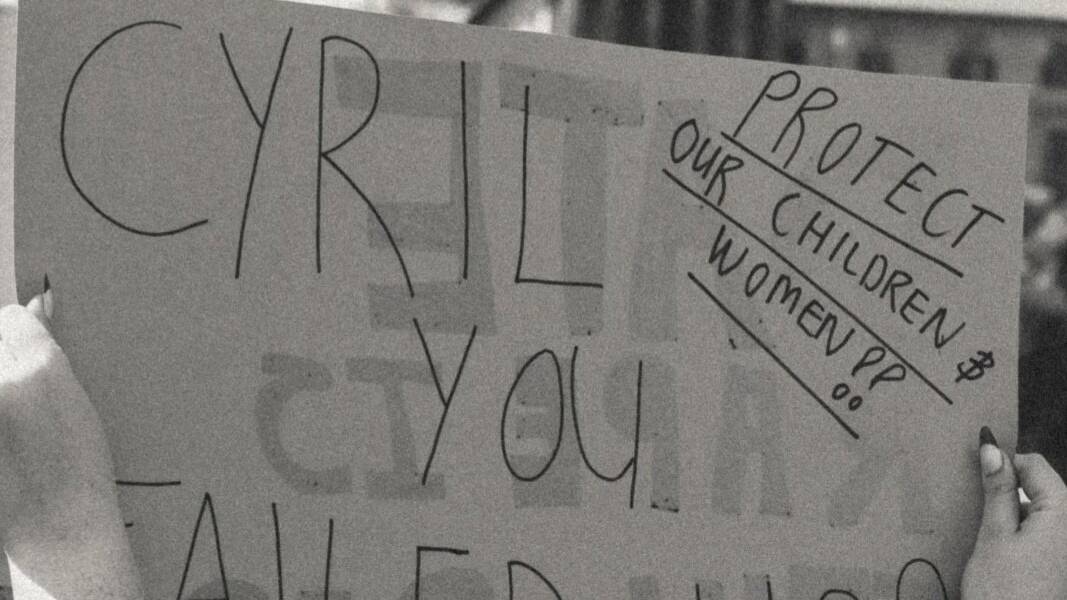 CYRIL
PROTECT
OUR CHILDREN $
WOMEN !!
YOU
FAILED